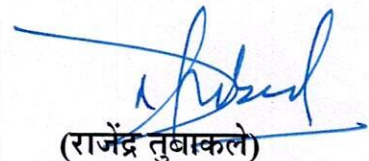 (राजेंद्र तुबाकले)